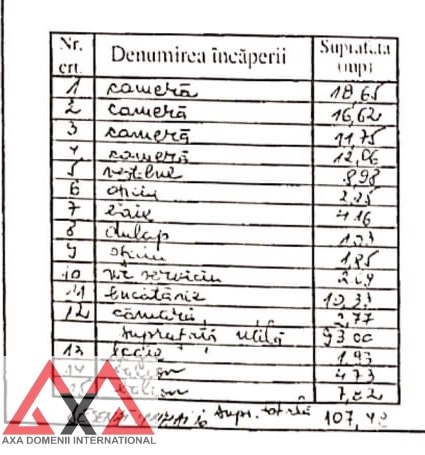 Nr. crt. Denumirea încăperii Suprafața (mp)
1 cameră 18,65
2 cameră 16,62
3 cameră 11,75
4 cameră 12,06
5 vestibul 8,98
6 oficiu 2,25
7 baie 4,16
8 dulap
9 1,85
10 wc serviciu
11 bucătărie 10,33
12 cămară 2,77
suprafață utilă 93,00
13 1,93
14 4,73
15
supr. totală 107,48
AXA DOMENII INTERNATIONAL